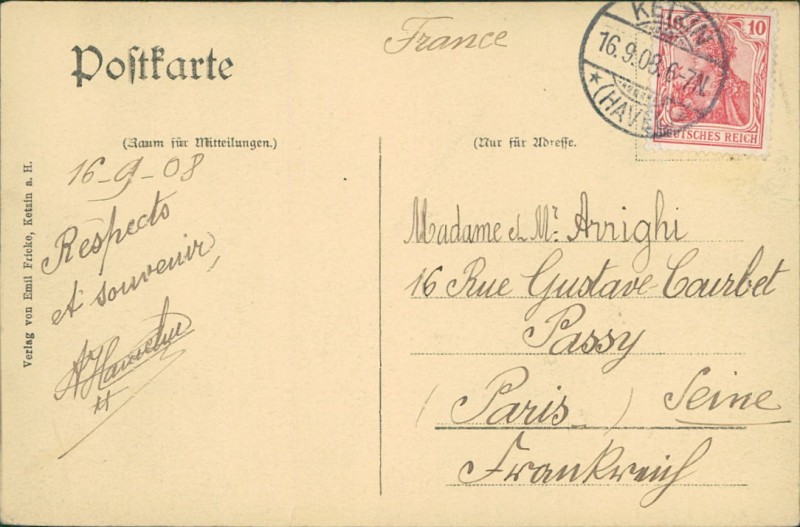 Postkarte
France
KETZIN
16.9.08.6-7N.
* (HAVEL)
10
DEUTSCHES REICH
(Raum für Mitteilungen.)
(Nur für Adresse.)
16-9-08
Respects
et souvenir
Madame et Mr. Arrighi
16 Rue Gustave-Courbet
Passy
(Paris) Seine
Frankreich
Verlag von Emil Fricke, Ketzin a. H.